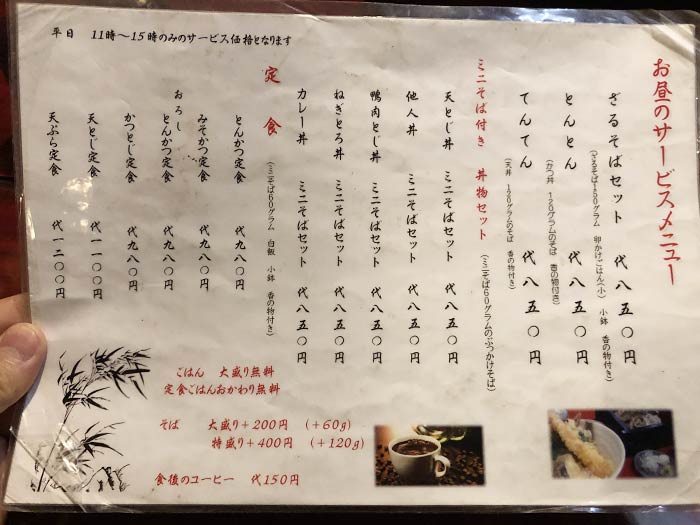 平日　11時～15時のみのサービス価格となります
お昼のサービスメニュー
ざるそばセット　代八五〇円
（ざるそば150グラム　卵かけごはん（小）　小鉢　香の物付き）
とんとん　代八五〇円
（かつ丼　120グラムのそば　香の物付き）
てんてん　代八五〇円
（天丼　120グラムのそば　香の物付き）
ミニそば付き　丼物セット
（ミニそば60グラムのぶっかけそば）
天とじ丼　ミニそばセット　代八五〇円
他人丼　ミニそばセット　代八五〇円
鴨肉とじ丼　ミニそばセット　代八五〇円
ねぎとろ丼　ミニそばセット　代八五〇円
カレー丼　ミニそばセット　代八五〇円
定食
（ミニそば60グラム　白飯　小鉢　香の物付き）
とんかつ定食　代九八〇円
みそかつ定食　代九八〇円
おろし
とんかつ定食　代九八〇円
かつとじ定食　代九八〇円
天とじ定食　代一一〇〇円
天ぷら定食　代一二〇〇円
ごはん　大盛り無料
定食ごはんおかわり無料
そば　大盛り＋200円　（＋60g）
特盛り＋400円　（＋120g）
食後のコーヒー　代150円